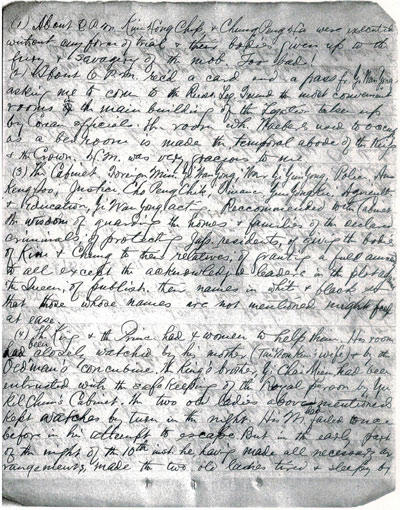 (1) About 2 P.M. Kim Hong Chip, & Chung Peng Ha were executed
without any form of trial & their bodies given up to the
fury & savagery of the mob. Too bad!
(2) About 6 P.M. rec'd a card and a pass fr. Yi Wan Yong
asking me to come to the Russ. Leg. Found the most convenient
rooms in the main building of the Legation taken up
by Corean officials. The room wh. Waeber used to occupy
as a bedroom is made the temporal abode of the King
& the Crown. H.M. was very gracious to me.
(3) The Cabinet. Foreign Min. Yi Wan Yong, War Yi Yun Yong, Police, Ahn
Kengsoo, Justice Cho Peng Chik, Finance Yun Yongku, Agricult
& Education, Yi Wan Yong act. Reccommended to the Cabinet
the wisdom of guarding the homes & families of the declared
criminals, of protecting Jap. residents, of giving the bodies
of Kim & Chung to their relatives, of granting a full amnesty
to all except the acknowledged leaders in the plot ag.
the Queen, of publish. their names in white & black so
that those whose names are not mentioned might feel
at ease.
(4) The King & the Prince had 2 women to help them. His room
had been closely watched by his mother (Tai Won Kun's wife) & by the
Oldman's concubine. The King's brother, Yi Chai Mien had been
intrusted with the safe keeping of the Royal person by Yu
Kil Chun's Cabinet. The two old ladies above mentioned
kept watches by turn in the night. His M. had failed once
before in his attempt to escape. But in the early part
of the night of the 10th inst. he, having made all necessary ar-
rangements, made the two old ladies tired & sleepy by